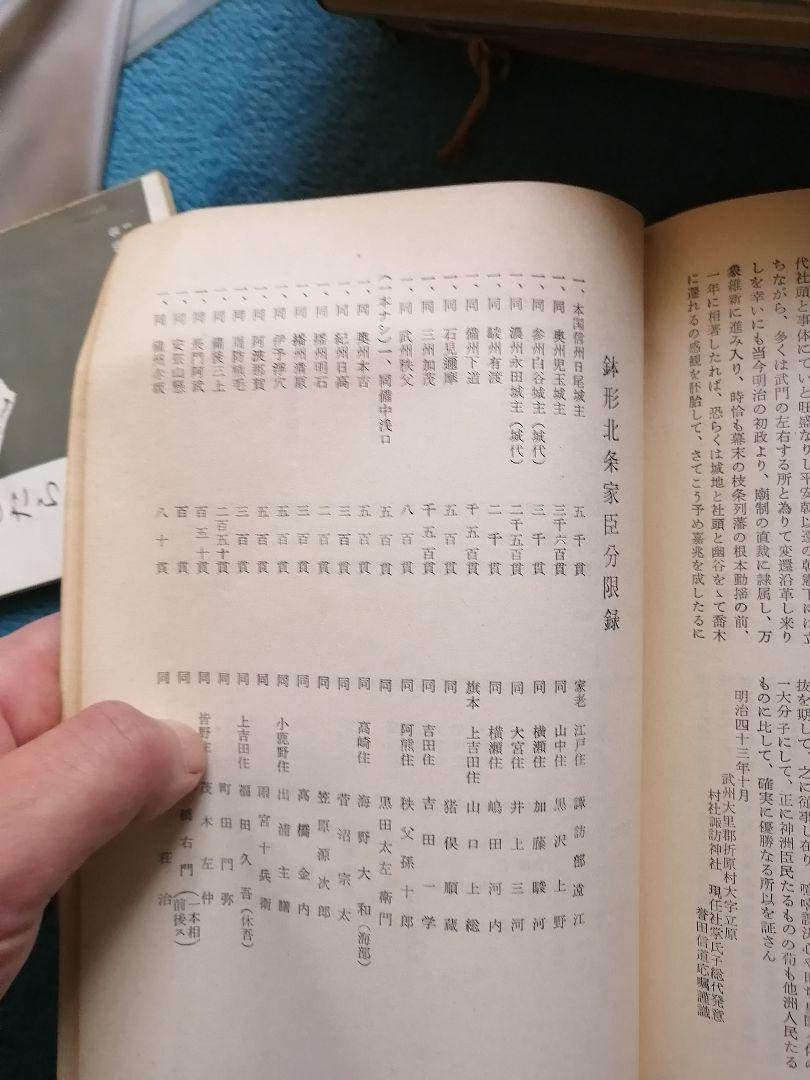 代社頭と事体にていと旺盛なりし平安朝以還の
ちながら、多くは武門の左右する所と為りて変還沿革し来り
しを幸いにも当今明治の初政より、廟制の直裁に隷属し、万
象維新に進み入り、時恰も幕末の枝条列藩の根本動揺の前、
一年に相著したれば、恐らくは城地と社頭と幽谷をゝて喬木
に遷れるの感観を胚胎して、さてこう予め嘉兆を成したるに
一大分子にして、正に神洲臣民たるものの苟も他洲人民たる
ものに比して、確実に優勝なる所以を証さん
明治四十三年十月
武州大里郡折原村大字立原
村社諏訪神社 現任社掌氏子総代発意
誉田信道応嘱謹識
鉢形北条家臣分限録
一、本国信州日尾城主 五千貫 家老 江戸住 諏訪部遠江
一、同 奥州児玉城主 三千六百貫 同 山中住 黒沢上野
一、同 参州白谷城主(城代) 三千貫 同 横瀬住 加藤駿河
一、同 濃州永田城主(城代) 二千五百貫 同 大宮住 井上三河
一、同 駿州有渡 二千貫 同 横瀬住 嶋田河内
一、同 備州下道 千五百貫 旗本 上吉田住 山口上総
一、同 石見邇摩 五百貫 同 猪俣順蔵
一、同 三州加茂 千五百貫 同 吉田住 吉田一学
一、同 武州秩父 八百貫 同 阿熊住 秩父孫十郎
(一本ナシ)一、同備中浅口 五百貫 同 黒田太左衛門
一、同 奥州本吉 五百貫 同 高崎住 海野大和(海部)
一、同 紀州日高 三百貫 同 菅沼宗太
一、同 播州明石 二百貫 同 笠原源次郎
一、同 播州 三百貫 同 高橋金内
一、同 伊予浮穴 五百貫 同 小鹿野住 出浦主膳
一、同 阿波那賀 五百貫 同 雨宮十兵衛
一、同 周防熊毛 三百貫 同 上吉田住 福田久吾(休吾)
一、同 備後三上 二百五十貫 同 町田門弥
一、同 長門阿武 百五十貫 同 皆野住 茂木左仲
一、同 安芸山県 百貫 同 橋右門(一本相前後ス)
一、同 八十貫 同 荘治